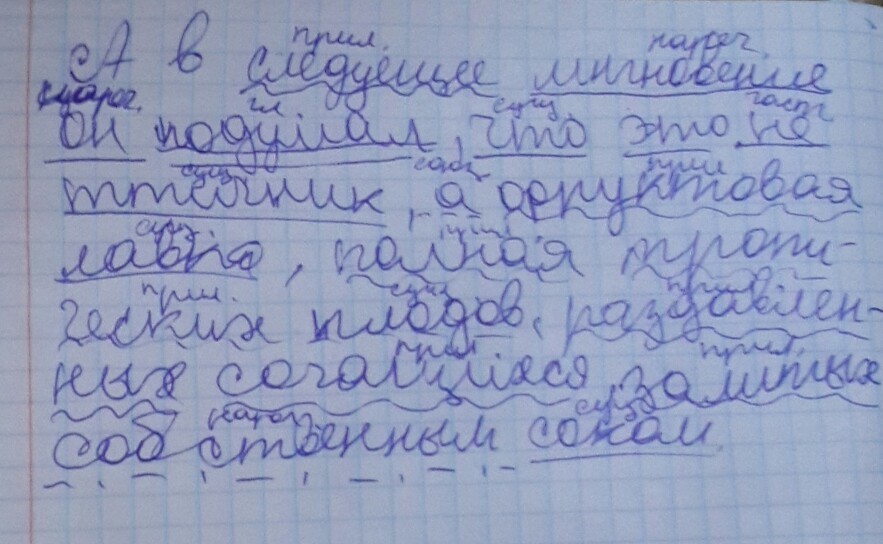 прил. нареч.
А в следующее мгновение
нареч. гл сущ част
он подумал, что это не
сущ союз прил
птичник, а фруктовая
сущ прил
лавка, полная тропи-
прил. сущ прил
ческих плодов, раздавлен-
прил прил.
ных сочащихся, залитых
нареч сущ
собственным соком.